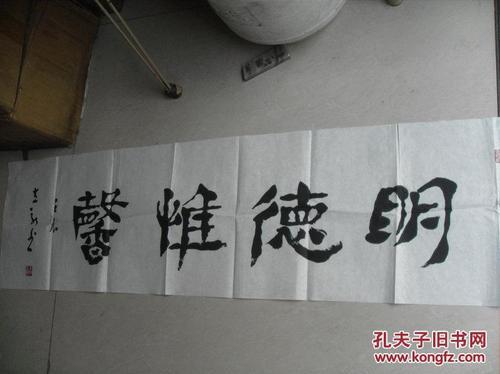 明德惟馨
孔夫子旧书网
www.kongfz.com